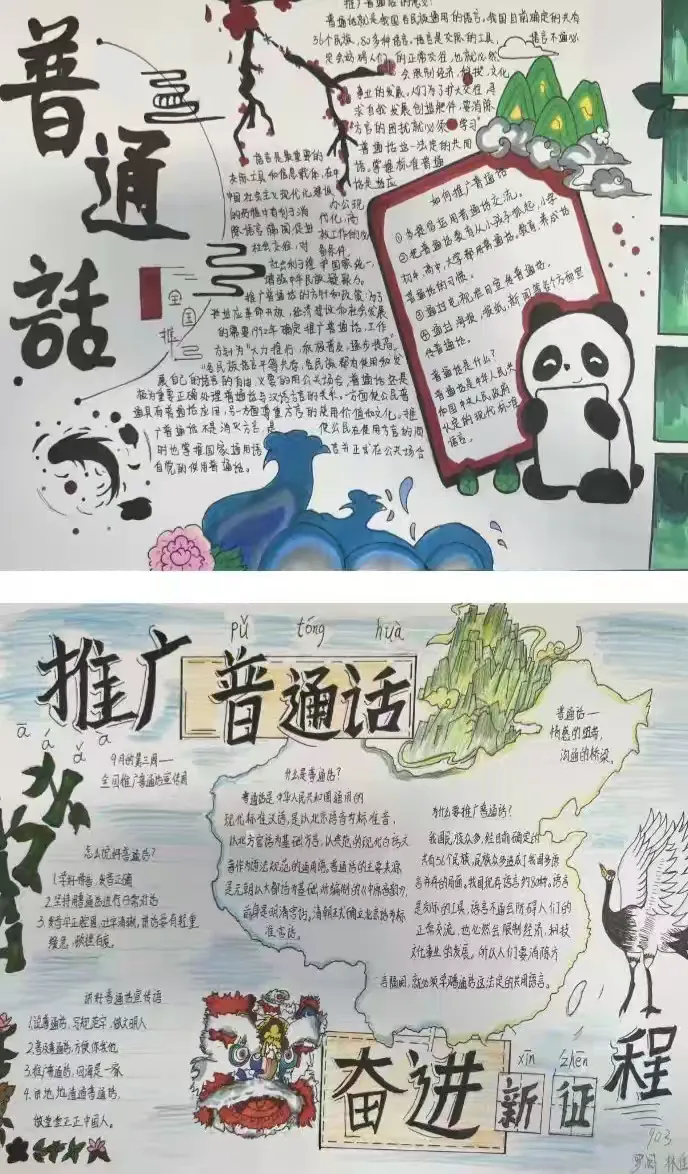 普通话
全国推
推广普通话的意义?
普通话就是我国各民族通用的语言,我国目前确定的共有
56个民族,80多种语言,语言是交际的工具,语言不通必
定会妨碍人们的正常交往,也就必然
会限制经济,科技,文化
事业的发展,人们为了扩大交往,寻
求自我发展创造条件,要消除
方言的困扰就必须学习
普通话这一法定的共同
语,掌握标准普通
语言是最重要的
交际工具和信息载体,在中
国社会主义现代化建设
的
除语言隔阂促进
社会交往,对
社会
增强中华民族凝聚力。
推广普通话的方针和政策:为了
的需要1992年确定推广普通话工作
方针为“大力推行,积极普及,逐步提高。”
各民族语言平等共存,各民族都有使用和发
展自己的语言的自由
极为重要正确处理普通话与汉语方言的关系。一方面使公民普
遍具有普通话应用,另一方面尊重方言的使用价值和文化。推
广普通话不是消灭方言,是使公民在使用方言的同
时也掌握国家通用语言并正式在公共场合
自觉的使用普通话。
如何推广普通话
①多提倡运用普通话交流。
②把普通话教育从小孩子抓起,小学
初中,高中,大学都用普通话教育,养成话
普通话的习惯。
③通过电视栏目宣传普通话。
④通过海报,报纸,新闻等各个方面宣
传普通话。
普通话是什么?
普通话是中华人民共
和国中央人民政府
认定的现代标准
语。
pǔ tōng huà
推广普通话
ā á ǎ à
9月的第三周——
全国推广普通话宣传周
怎么说好普通话?
1.学好拼音,发音正确
2.坚持用普通话进行日常对话
3.发音平正腔圆,吐字清晰,说话要有轻重
缓急,顿挫自度。
说好普通话宣传语
1.说普通话,写规范字,做文明人
2.普及普通话,方便你我他
3.推广普通话,四海是一家
4.讲地地道道普通话,
做堂堂正正中国人。
什么是普通话?
普通话是中华人民共和国通用的
现代标准汉语,是以北京语音为标准音,
以北方官话为基础方言,以典范的现代白话文
著作为语法规范的通用语,普通话的主要来源
是元朝以大都话为基础所编制的《中原音韵》,
前身是明清官话。清朝正式确立北京话为标
准官话。
普通话——
情感的纽带,
沟通的桥梁。
为什么要推广普通话?
我国民族众多,经目前确定的
共有56个民族,民族众多造成了我国多语
言并存的局面。我国现有语言约80种,语言
是交际的工具,语言不通会防碍人们的
正常交流,也必然会限制经济,科技
文化事业的发展。所以人们要消除方
言隔阂,就必须学习普通话这法定的共同语言。
xīn zhēn
奋进新征程
903